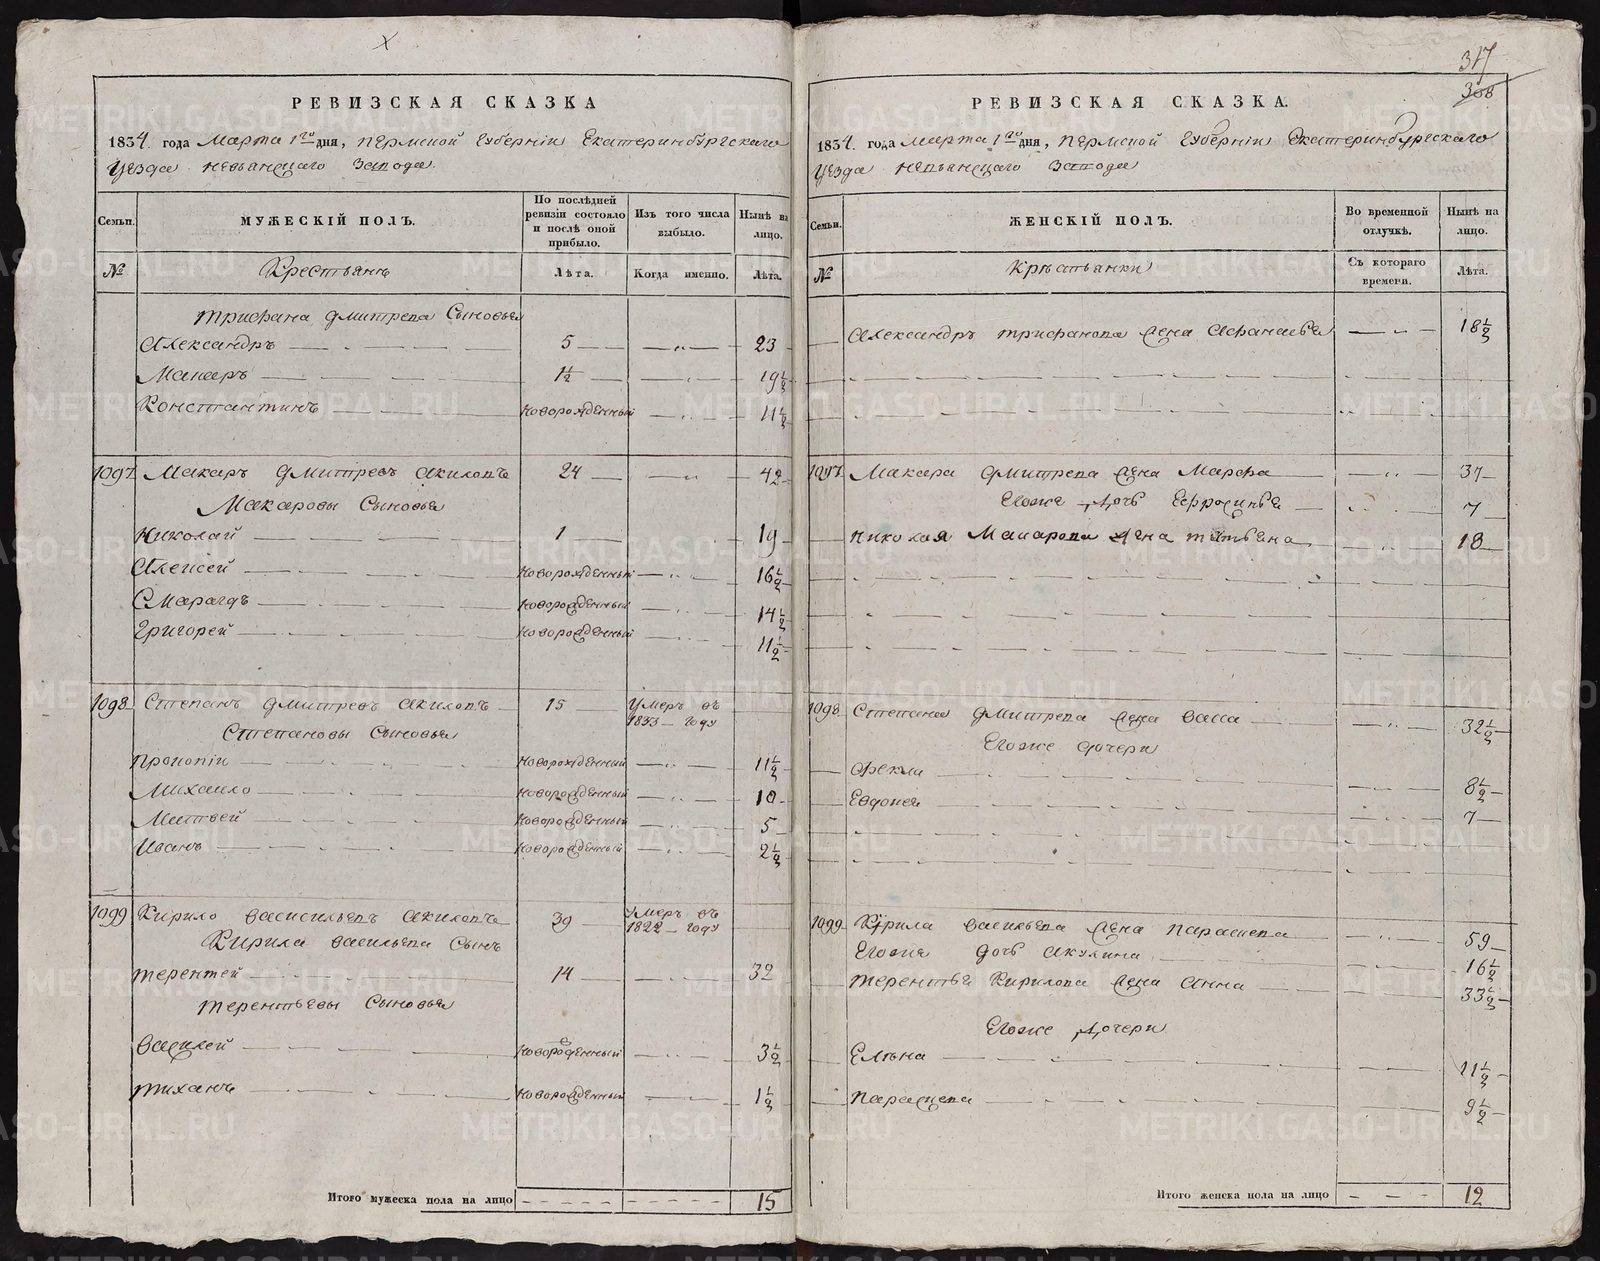 РЕВИЗСКАЯ СКАЗКА
1834 года Марта 1го дня, Пермской Губернiи Екатеринбургскаго
уезда Невьянсцаго Завода
Семьи.
МУЖЕСКIЙ ПОЛЪ.
По послѣдней ревизiи состояло и послѣ оной прибыло.
Изъ того числа выбыло.
Нынѣ на лицо.
№
Крестьянъ
Лѣта.
Когда именно.
Лѣта.
Трифана Дмитрева Сыновья
Александръ 5 23
Макаръ 1½ 19½
Константинъ новорожденный 11½
1097 Макаръ Дмитревъ Акиловъ 24 42
Макаровы Сыновья
Николай 1 19
Алексей новорожденный 16½
Смарагдъ новорожденный 14½
Григорей новорожденный 11½
1098 Степанъ Дмитревъ Акиловъ 15 умеръ въ 1833 году
Степановы Сыновья
Прокопiи новорожденный 11½
Михаило новорожденный 10
Матвей новорожденный 5
Иванъ новорожденный 2½
1099 Кирило Васильевъ Акиловъ 39 умеръ въ 1822 году
Кирила Васильева Сынъ
Терентей 14 32
Терентьевы Сыновья
Василей новорожденный 3½
Тиханъ новорожденный 1½
Итого мужеска пола на лицо 15
317
308
РЕВИЗСКАЯ СКАЗКА.
1834. года Марта 1го дня, Пермской Губернiи Екатеринбургскаго
уезда Невьянсцаго Завода
Семьи.
ЖЕНСКIЙ ПОЛЪ.
Во временной отлучкѣ.
Нынѣ на лицо.
№
Крѣстьянки
Съ котораго времени.
Лѣта.
Александръ Трифанова жена Афанасья 18½
1097 Макара Дмитрева жена Марфа 37
Егоже дочь Ефросинья 7
Николая Макарова жена Татьена 18
1098 Степана Дмитрева жена Васса 32½
Егоже дочери
Фекла 8½
Евдокея 7
1099 Кирила Васильева жена Парасцева 59
Егоже дочь Акулина 16½
Терентья Кирилова жена Анна 33½
Егоже дочери
Елѣна 11½
Парасцева 9½
Итого женска пола на лицо 12
METRIKI.GASO-URAL.RU